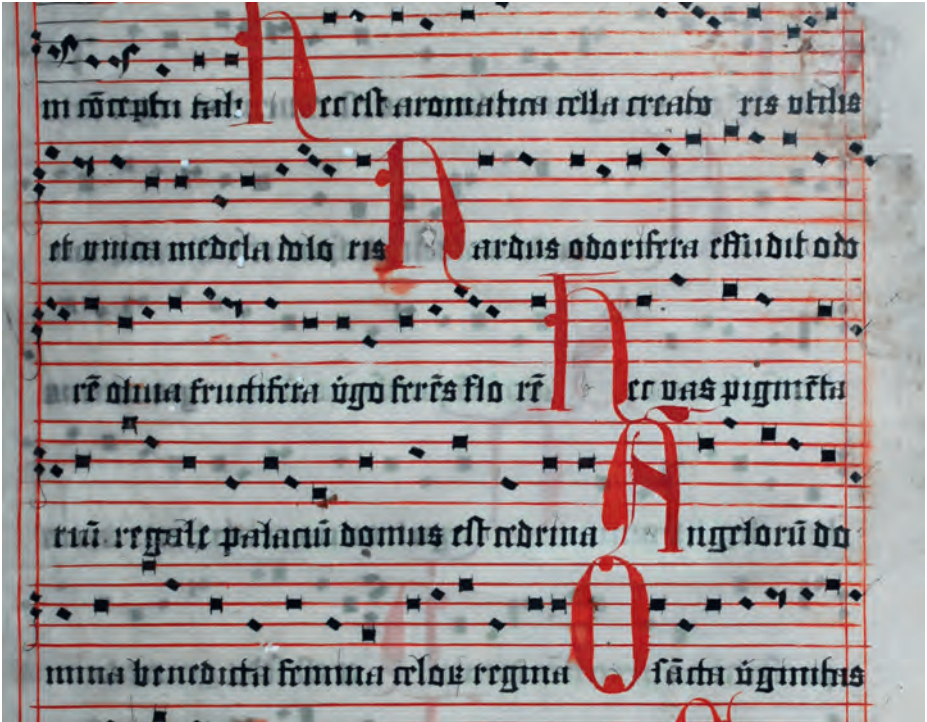 in cōceptu tali Hec est aromatica cella creato ris vtilis
et vnica medela dolo ris Nardus odorifera effudit odo
rē oliua fructifera v̇go ferēs flo rē Hec vas pigmēta
riū regale palaciū domus est cedrina Angelorū do
mina benedicta femina celoꝝ regina O sācta v̇ginitas